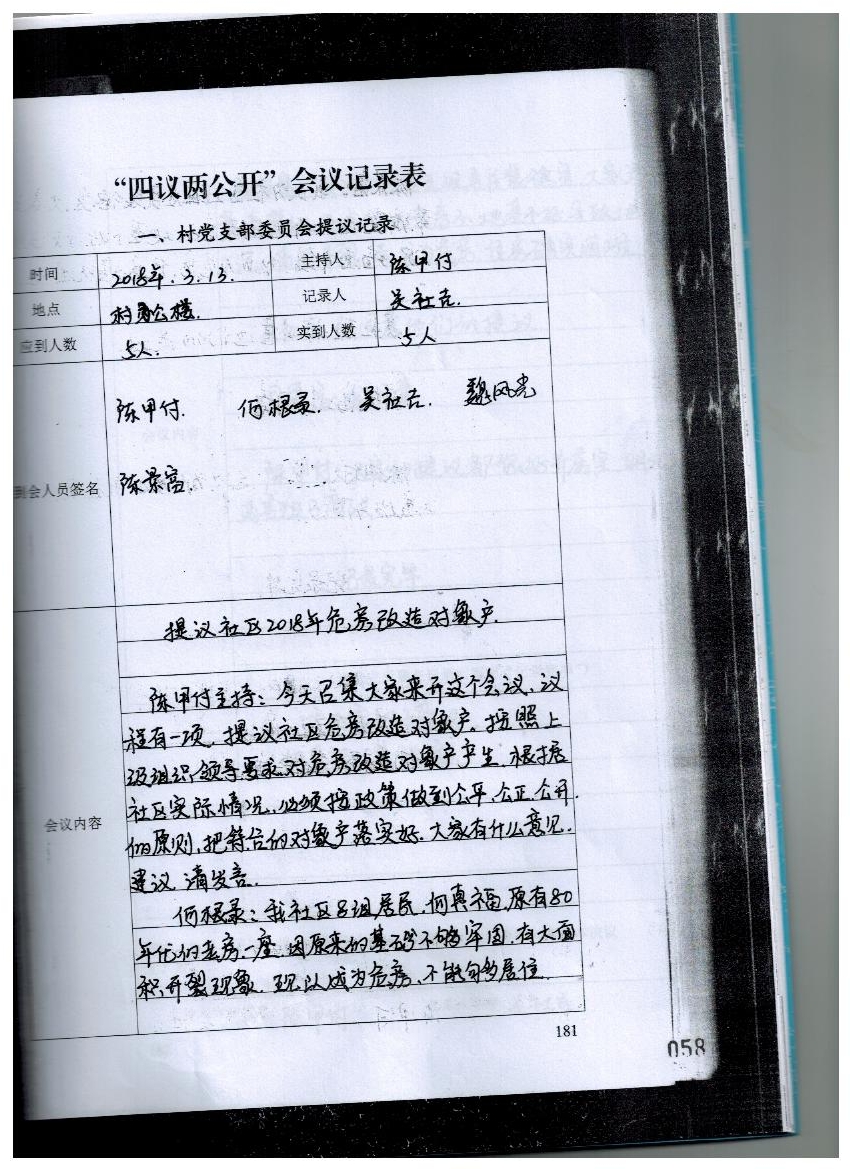 “四议两公开”会议记录表
一、村党支部委员会提议记录
时间 2018年.3.13. 主持人 陈甲付
地点 村办公楼. 记录人 吴社吉.
应到人数 5人. 实到人数 5人
陈甲付. 何根录. 吴社吉. 魏风光
到会人员签名 陈景富.
提议社区2018年危房改造对象户.
陈甲付主持：今天召集大家来开这个会议，议
程有一项，提议社区危房改造对象户，按照上
级组织领导要求，对危房改造对象户产生，根据
社区实际情况，必须按政策做到公平、公正、公开
会议内容
的原则，把符合的对象户落实好，大家有什么意见、
建议，请发言.
何根录：我社区8组居民，何真福，原有80
年代的老房一座，因原来的基础不够牢固，有大面
积开裂现象，现以成为危房，不能句多居住.
181
058